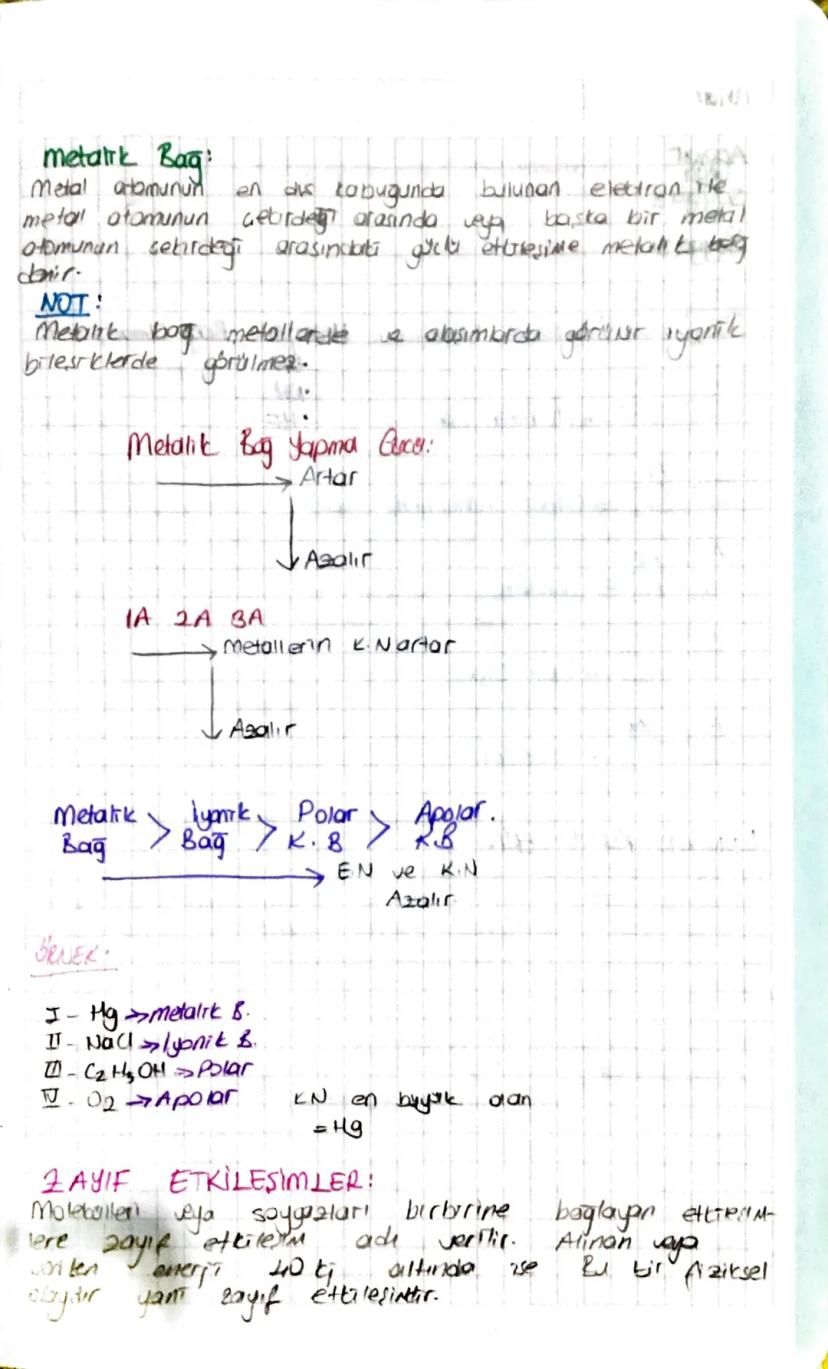 Metalik Bağ:
Metal atomunun en dış kabuğunda bulunan elektron ile
metal atomunun çekirdeği arasında veya başka bir metal
atomunun çekirdeği arasındaki güçlü etkileşime metalik bağ
denir.
NOT:
Metalik bağ metallerde ve alaşımlarda görünür iyonik
bileşiklerde görülmez.
Metalik Bağ Yapma Gücü:
→ Artar
↓ Azalır
1A 2A 3A
→ Metallerin K.N artar
↓ Azalır
Metalik > İyonik > Polar > Apolar.
Bağ Bağ K.B K.B
→ E.N ve K.N
Azalır
ÖRNEK:
I - Hg → metalik B.
II - NaCl → İyonik B.
III - C2H5OH → Polar
IV - O2 → Apolar KN en büyük olan
= Hg
ZAYIF ETKİLEŞİMLER:
Molekülleri veya soygazları birbirine bağlayan etkileşim-
lere zayıf etkileşim adı verilir. Alınan veya
verilen enerji 40 kj altında ise bu bir fiziksel
olaydır yani zayıf etkileşimtir.